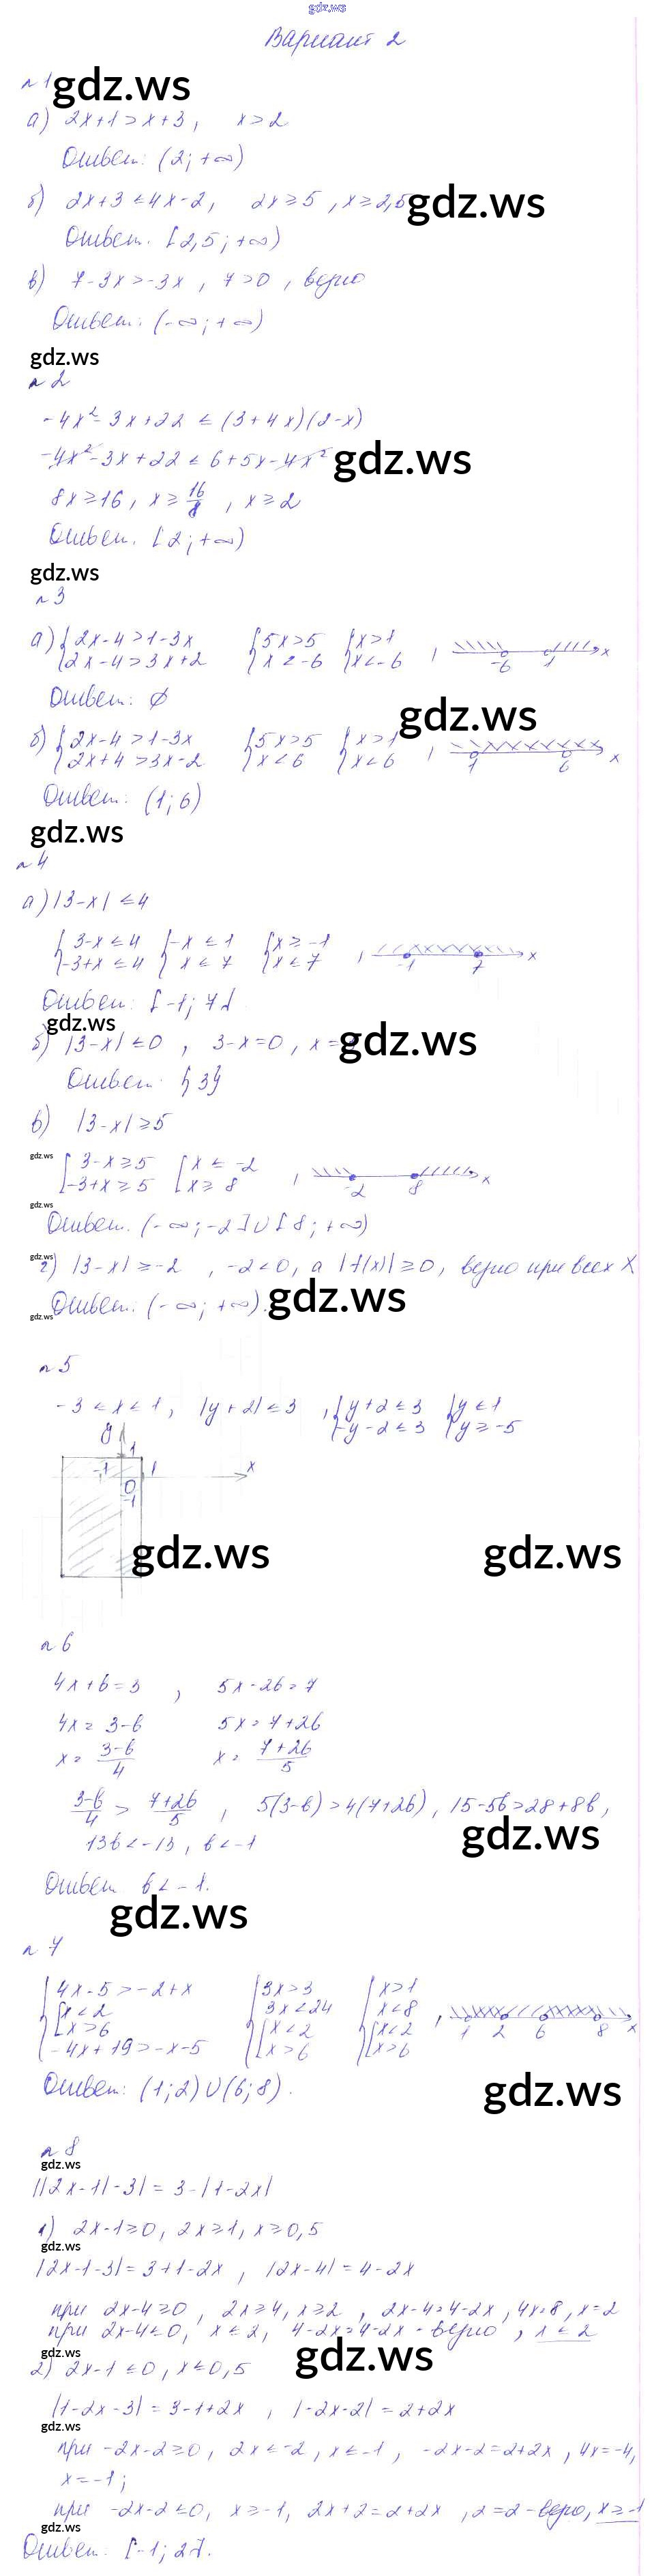 gdz.ws
Вариант 2
№1 gdz.ws
а) 2x+1 > x+3, x>2
Ответ: (2; +∞)
б) 2x+3 ≤ 4x-2, 2x ≥ 5, x ≥ 2,5 gdz.ws
Ответ. [2,5; +∞)
в) 7-3x > -3x, 7>0, верно
Ответ: (-∞; +∞)
gdz.ws
№2
-4x²-3x+22 ≤ (3+4x)(2-x)
-4x²-3x+22 ≤ 6+5x-4x² gdz.ws
8x ≥ 16, x ≥ 16/8, x ≥ 2
Ответ. [2; +∞)
gdz.ws
№3
а) { 2x-4 > 1-3x { 5x > 5 { x > 1
2x-4 > 3x+2 x < -6 x < -6, -6 1 x
Ответ: ∅
gdz.ws
б) { 2x-4 > 1-3x { 5x > 5 { x > 1
2x+4 > 3x-2 x < 6 x < 6, 1 6 x
Ответ: (1; 6)
gdz.ws
№4
а) |3-x| ≤ 4
{ 3-x ≤ 4 { -x ≤ 1 { x ≥ -1
-3+x ≤ 4 x ≤ 7 x ≤ 7, -1 7 x
Ответ: [-1; 7].
gdz.ws
б) |3-x| ≤ 0, 3-x=0, x = gdz.ws
Ответ. {3}
в) |3-x| ≥ 5
gdz.ws
[ 3-x ≥ 5 [ x ≤ -2
-3+x ≥ 5 x ≥ 8, -2 8 x
gdz.ws
Ответ. (-∞; -2] U [8; +∞)
gdz.ws
г) |3-x| ≥ -2, -2<0, а |f(x)| ≥ 0, верно при всех x
Ответ. (-∞; +∞). gdz.ws
gdz.ws
№5
-3 ≤ x ≤ 1, |y+2| ≤ 3, { y+2 ≤ 3 { y ≤ 1
-y-2 ≤ 3 y ≥ -5
y 1
-1 1 x
0
-1
gdz.ws gdz.ws
№6
4x+b=3, 5x-2b=7
4x = 3-b 5x = 7+2b
x = (3-b)/4 x = (7+2b)/5
(3-b)/4 > (7+2b)/5, 5(3-b) > 4(7+2b), 15-5b > 28+8b,
13b < -13, b < -1 gdz.ws
Ответ b < -1.
gdz.ws
№7
{ 4x-5 > -2+x { 3x > 3 { x > 1
[ x < 2 3x < 24 x < 8
x > 6 [ x < 2 [ x < 2, 1 2 6 8 x
-4x+19 > -x-5 x > 6 x > 6
Ответ: (1; 2) U (6; 8).
gdz.ws
№8
gdz.ws
||2x-1|-3| = 3-|1-2x|
1) 2x-1 ≥ 0, 2x ≥ 1, x ≥ 0,5
gdz.ws
|2x-1-3| = 3+1-2x, |2x-4| = 4-2x
при 2x-4 ≥ 0, 2x ≥ 4, x ≥ 2, 2x-4=4-2x, 4x=8, x=2
при 2x-4 ≤ 0, x ≤ 2, 4-2x=4-2x - верно, x ≤ 2
gdz.ws gdz.ws
2) 2x-1 ≤ 0, x ≤ 0,5
|1-2x-3| = 3-1+2x, |-2x-2| = 2+2x
gdz.ws
при -2x-2 ≥ 0, 2x ≤ -2, x ≤ -1, -2x-2=2+2x, 4x=-4,
x=-1;
при -2x-2 ≤ 0, x ≥ -1, 2x+2=2+2x, 2=2 - верно, x ≥ -1
gdz.ws
Ответ: [-1; 2].